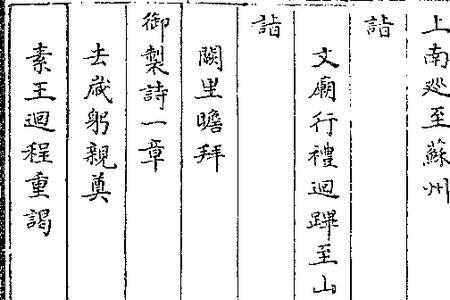 上南廵至蘇州
詣
文廟行禮迴蹕至山
詣
闕里瞻拜
御製詩一章
去歲躬親奠
素王迴程重謁